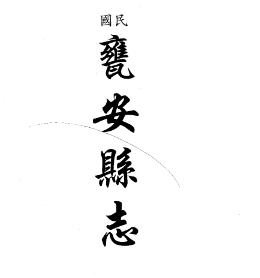 民國
甕安縣志